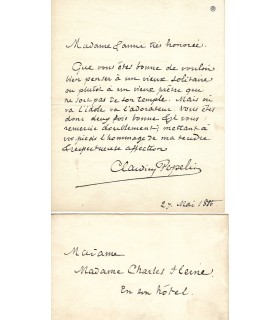 Madame & amie très honorée.
Que vous êtes bonne de vouloir
bien penser à un vieux solitaire
ou plutôt à un vieux prêtre qui
ne sort pas de son temple. Mais où
va l'idole va l'adorateur. Vous êtes
donc deux fois bonne & je vous
remercie doublement; mettant à
vos pieds l'hommage de ma tendre
& respectueuse affection
Claudius Popelin
27 Mai 1886
Madame
Madame Charles Heine.
En son hôtel.